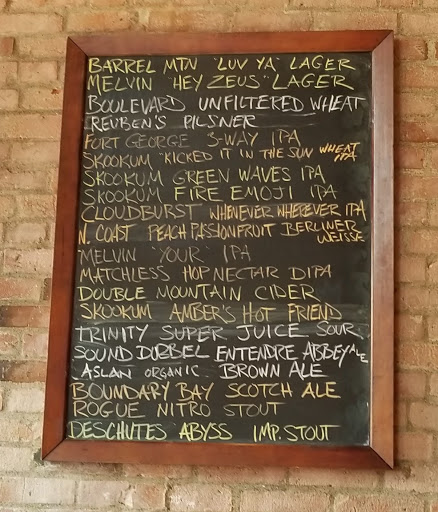 BARREL MTN "LUV YA" LAGER
MELVIN "HEY ZEUS" LAGER
BOULEVARD UNFILTERED WHEAT
REUBEN'S PILSNER
FORT GEORGE 3-WAY IPA
SKOOKUM "KICKED IT IN THE SUN WHEAT IPA
SKOOKUM GREEN WAVES IPA
SKOOKUM FIRE EMOJI IPA
CLOUDBURST WHENEVER WHEREVER IPA
N. COAST PEACH PASSIONFRUIT BERLINER WEISSE
MELVIN "YOUR" IPA
MATCHLESS HOP NECTAR DIPA
DOUBLE MOUNTAIN CIDER
SKOOKUM AMBER'S HOT FRIEND
TRINITY SUPER JUICE SOUR
SOUND DUBBEL ENTENDRE ABBEY ALE
ASLAN ORGANIC BROWN ALE
BOUNDARY BAY SCOTCH ALE
ROGUE NITRO STOUT
DESCHUTES ABYSS IMP. STOUT